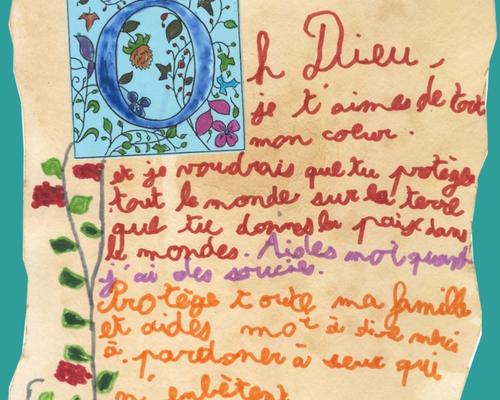 Oh Dieu,
je t'aimes de tout
mon coeur.
et je voudrais que tu protège
tout le monde sur la terre
que tu donnes la paix dans
le mondes. Aides moi quand
j'ai des soucis.
Protège toute ma famille
et aides moi à dire merci
à pardoner à ceux qui
m'embêtent